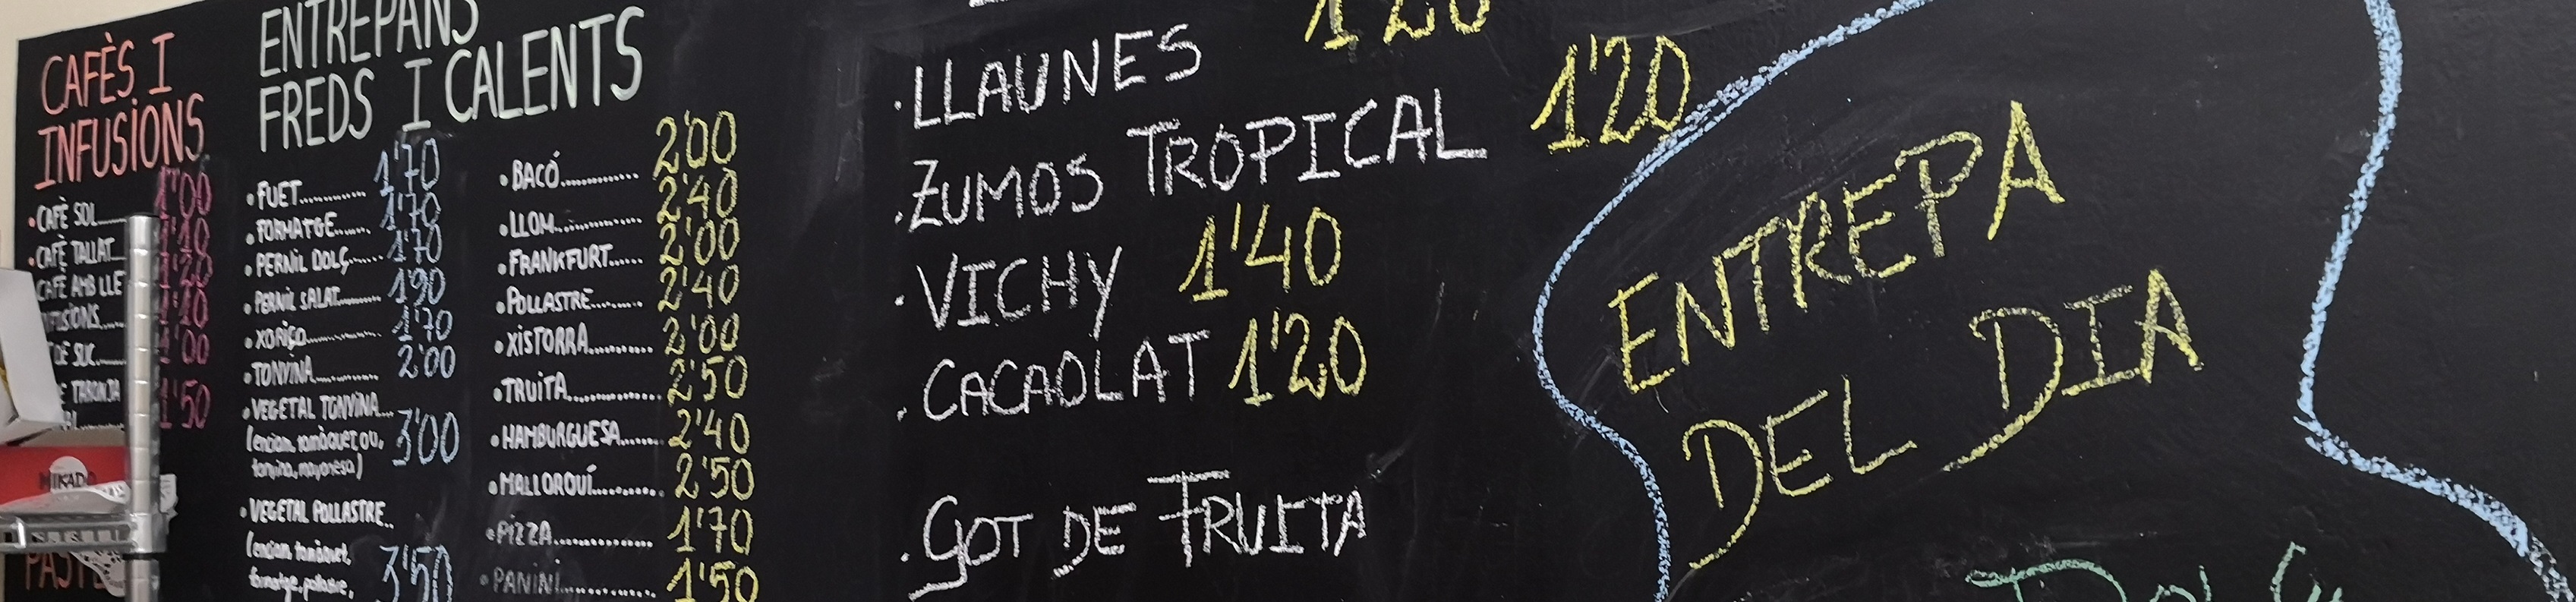 CAFÈS I
INFUSIONS
CAFÈ SOL 1'00
CAFÈ TALLAT 1'10
CAFÈ AMB LLE 1'20
1'10
DE SUC 1'00
TARONJA 1'50
MIKADO
ENTREPANS
FREDS I CALENTS
• FUET............ 1'70
• FORMATGE....... 1'70
• PERNIL DOLÇ...... 1'70
• PERNIL SALAT........ 1'90
• XORIÇO............. 1'70
• TONYINA............ 2'00
• VEGETAL TONYINA...
(enciam, tomàquet, ou, 3'00
tonyina, mayonesa)
• VEGETAL POLLASTRE..
(enciam, tomàquet,
formatge, pollastre, 3'50
• BACÓ............ 2'00
• LLOM............ 2'40
• FRANKFURT...... 2'00
• POLLASTRE......... 2'40
• XISTORRA.......... 2'00
• TRUITA............. 2'50
• HAMBURGUESA...... 2'40
• MALLORQUÍ.......... 2'50
• PIZZA............... 1'70
• PANINI.............. 1'50
• LLAUNES 1'20
• ZUMOS TROPICAL 1'20
• VICHY 1'40
• CACAOLAT 1'20
• GOT DE FRUITA
ENTREPA
DEL DIA